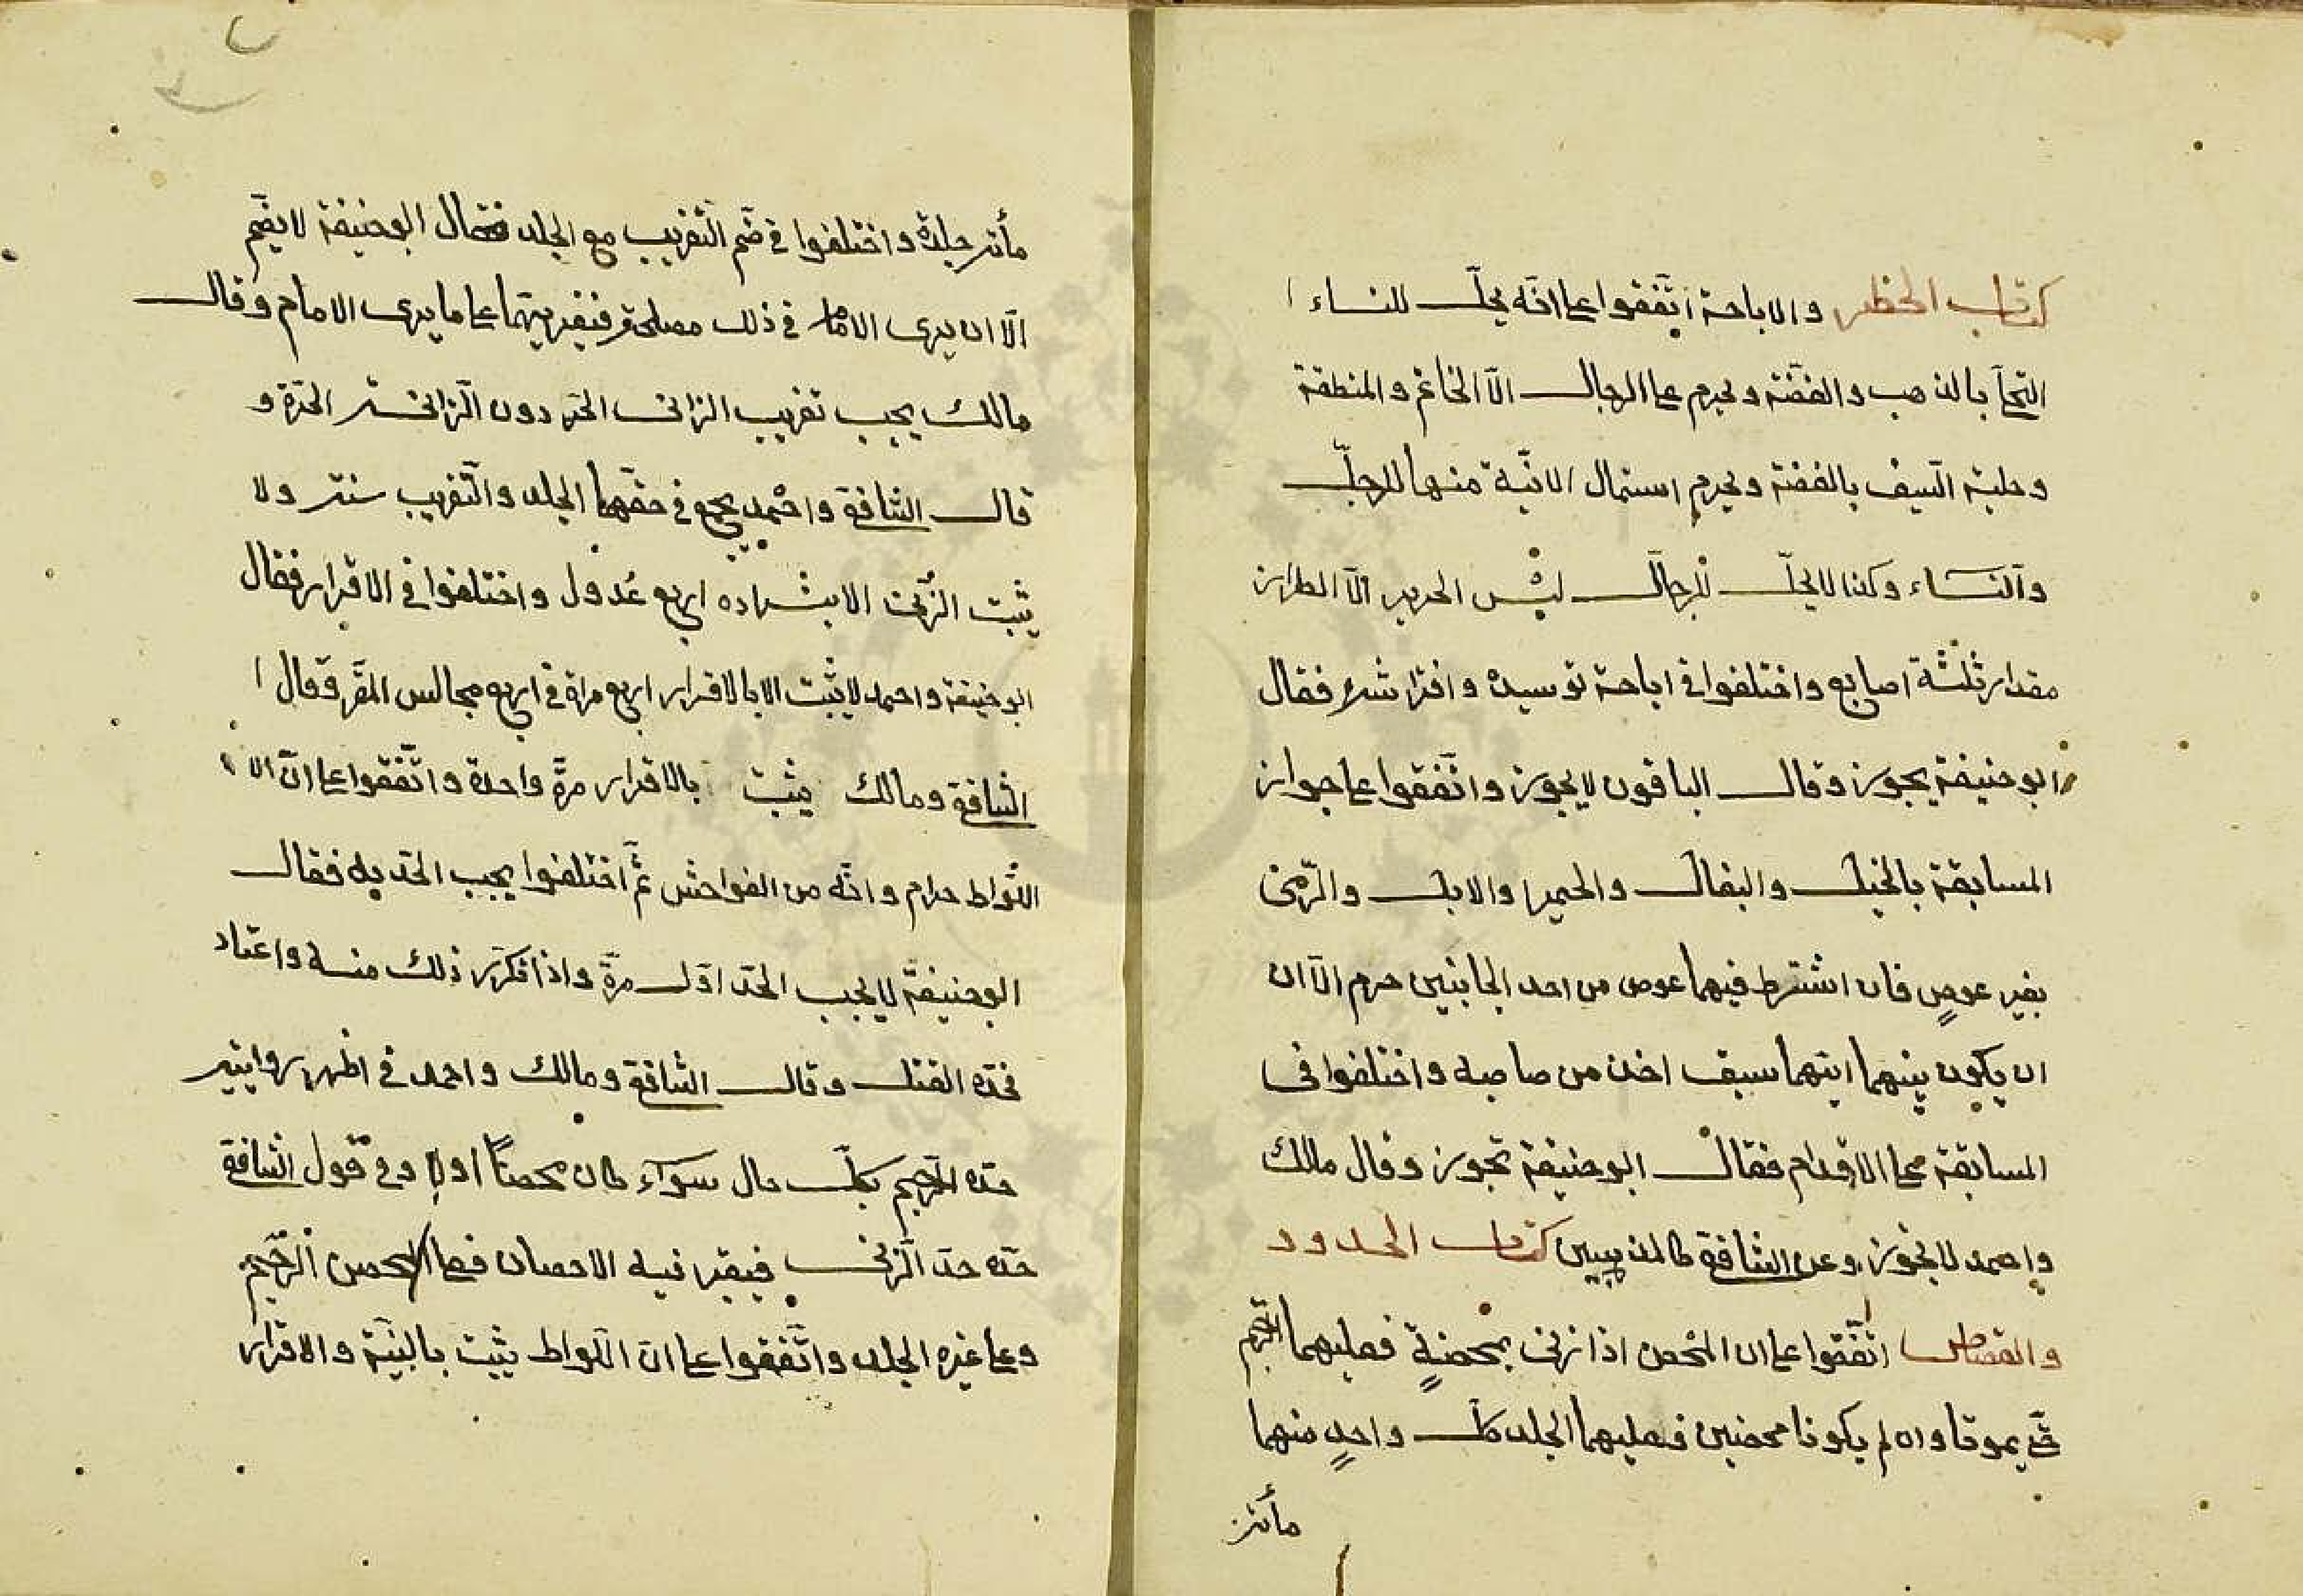 كتاب الحظر والاباحة اتّفقوا على انّه يحلّ للنساء
التحلّي بالذهب والفضّة ويحرم على الرجال الّا الخاتم والمنطقة
وحلية السّيف بالفضة ويحرم استعمال الانّية منهما للرجلّ
والنّساء وكذا لا يحلّ للرجال لبْس الحرير الّا الطراز
مقدار ثلثة اصابع واختلفوا في اباحة توسيده وافتراشه فقال
ابو حنيفة يجوز وقال الباقون لا يجوز واتّفقوا على جواز
المسابقة بالخيل والبغال والحمير والابل والرّمي
بغير عوضٍ فان اشترط فيهما عوض من احد الجانبين حرم الّا ان
ان يكون بينهما ايّهما سبق اخذ من صاحبه واختلفوا في
المسابقة على الاقدام فقال ابو حنيفة تجوز وقال مالك
واحمد لا يجوز وعن الشافعي كالمذهبين كتاب الحدود
والقصاص اتّفقوا على ان المحْصن اذا زنى بمحْصنةٍ فعليهما الرّجم
حتّى يموتا وان لم يكونا محصنين فعليهما الجلد كلّ واحدٍ منهما
مأئة
مأئة جلدة واختلفوا في ضّم التّغريب مع الجلد فقال ابو حنيفة لا يضّم
الّا ان يرى الامام في ذلك مصلحة فيغربهما على ما يرى الامام وقال
مالك يجب تغريب الزاني الحرّ دون الزانية الحرّة و
قال الشافعي واحْمد يجمع في حقّهما الجلد والتّغريب سنة ولا
يثبت الزّنى الا بشهاده اربع عُدول واختلفوا في الاقرار فقال
ابو حنيفة واحمد لا يثبت الا بالاقرار اربع مرة في اربع مجالس المقّر وقال
الشافعي ومالك يثبت بالاقرار مرّة واحدة واتّفقوا على انّ
اللّواط حرام وانّه من الفواحش ثمّ اختلفوا يجب الحدّ به فقال
ابو حنيفة لا يجب الحدّ اوّل مرّة واذا تكرّر ذلك منه واعتاد
فحدّه القتل وقال الشافعي ومالك واحمد في اظهر روايتيه
حدّه الرّجم بكلّ حال سوآء كان محصنًا اولا وفي قول الشافعي
حدّه حدّ الزّنى فيعتبر فيه الاحصان فعلى المحصن الرّجم
وعلى غيره الجلد واتّفقوا على انّ اللّواط يثبت بالبيّنة والاقرار